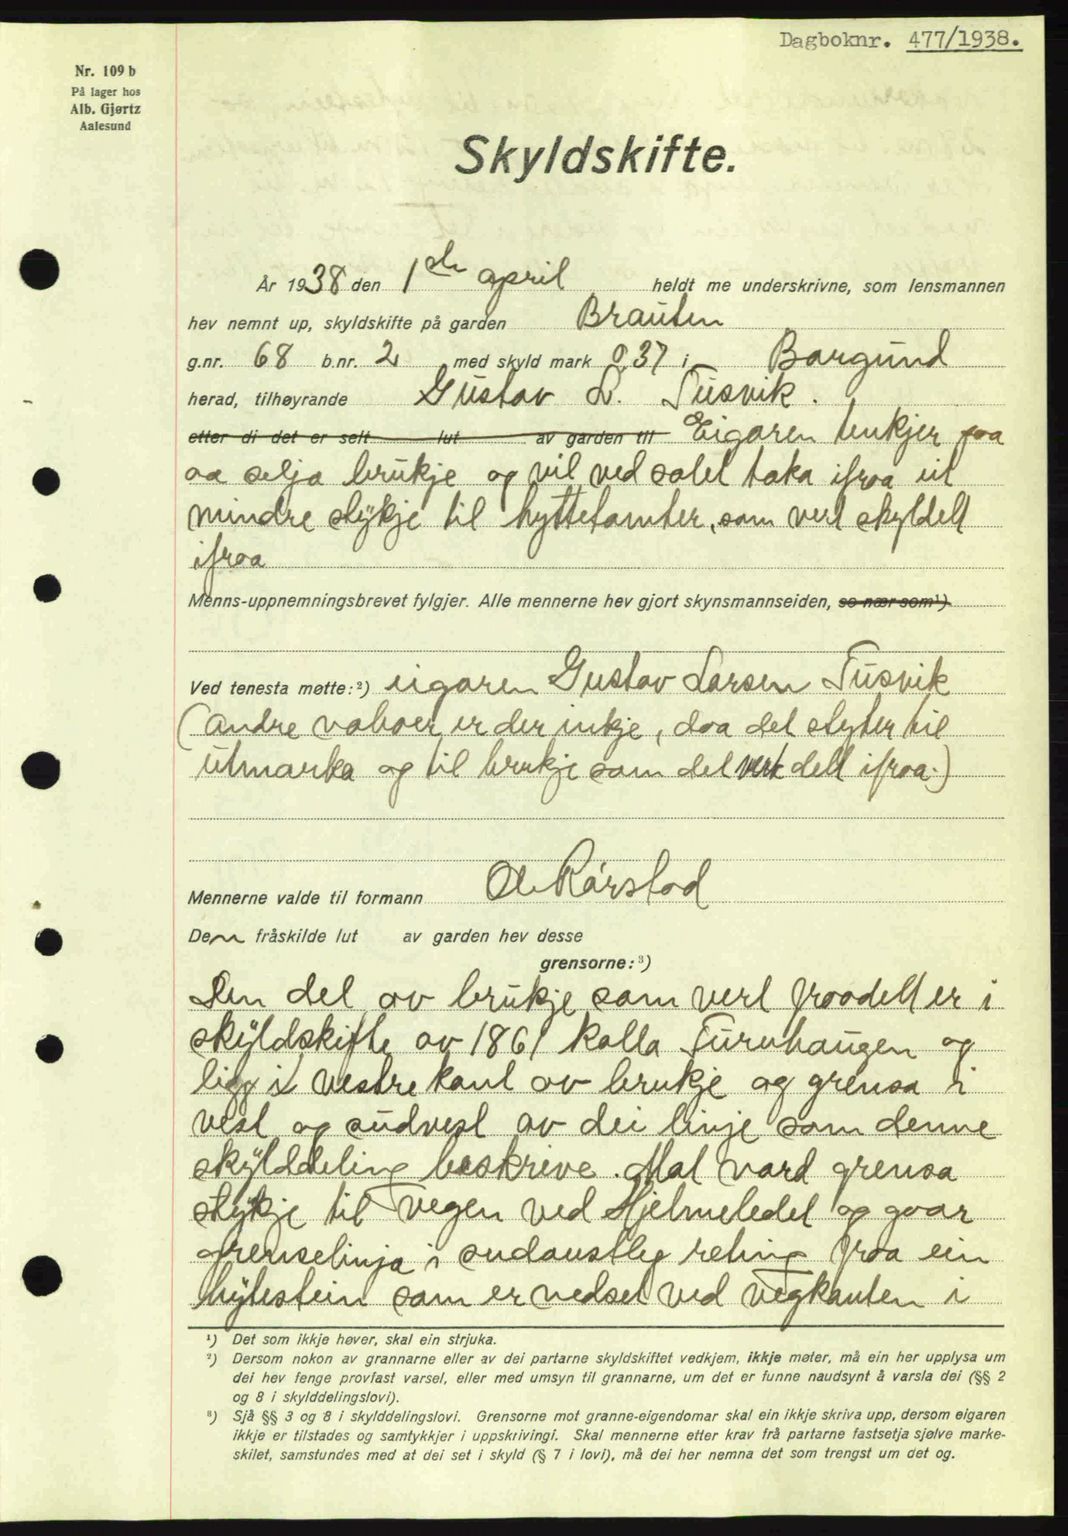 Dagboknr. 477/1938.
Nr. 109 b
På lager hos
Alb. Gjørtz
Aalesund
Skyldskifte.
År 1938 den 1ste april heldt me underskrivne, som lensmannen
hev nemnt up, skyldskifte på garden Brauten
g.nr. 68 b.nr. 2 med skyld mark 0.37 i Borgund
herad, tilhøyrande Gustav L. Tusvik.
etter di det er selt lut av garden til Eigaren tenkjer paa
aa selja brukje og vil ved salet taka ifraa eit
mindre stykje til hyttetomter, som vert skyldelt
ifraa
Menns-uppnemningsbrevet fylgjer. Alle mennerne hev gjort skynsmannseiden, so nær som¹)
Ved tenesta møtte:²) eigaren Gustav Larsen Tusvik
(andre naboer er der inkje, daa det støter til
utmarka og til brukje som det vert delt ifraa.)
Mennerne valde til formann O. Rørstad
Den fråskilde lut av garden hev desse
grensorne:³)
Den del av brukje som vert fraadelt er i
skyldskifte av 1861 kalla Furuhaugen og
ligg i vestre kant av brukje og grensa i
vest og sudvest av dei linje som denne
skylddeling beskrive. Mot nord grensa
stykje til vegen ved Hjelmeledet og gaar
grenselinja i sudaustleg retning fraa ein
bytestein som er nedset ved vegkanten i
¹) Det som ikkje høver, skal ein strjuka.
²) Dersom nokon av grannarne eller av dei partarne skyldskiftet vedkjem, ikkje møter, må ein her upplysa um
dei hev fenge provfast varsel, eller med umsyn til grannarne, um det er funne naudsynt å varsla dei (§§ 2
og 8 i skylddelingslovi).
³) Sjå §§ 3 og 8 i skylddelingslovi. Grensorne mot granne-eigendomar skal ein ikkje skriva upp, dersom eigaren
ikkje er tilstades og samtykkjer i uppskrivingi. Skal mennerne etter krav frå partarne fastsetja sjølve marke-
skilet, samstundes med at dei set i skyld (§ 7 i lovi), må dei her nemna det som trengst um det og.